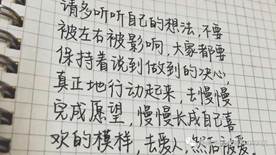 请多听听自己的想法，不要
被左右被影响，大家都要
保持着说到做到的决心，
真正地行动起来，去慢慢
完成愿望，慢慢长成自己喜
欢的模样，去爱人，然后被爱